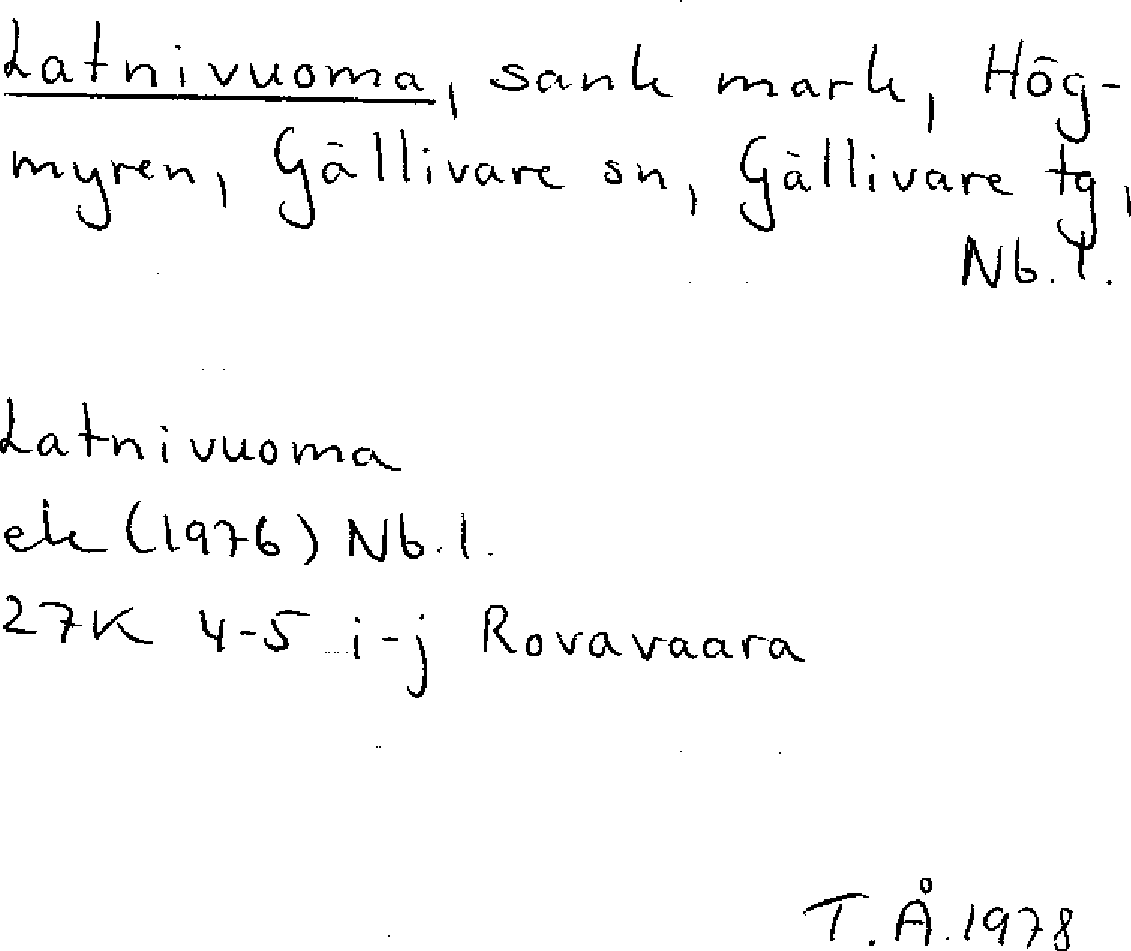 Latnivuoma, sank mark, Hög-
myren, Gällivare sn, Gällivare tg,
Nb. l.
Latnivuoma
ek (1976) Nb. l.
27K 4-5 i-j Rovavaara
T. Å. 1978